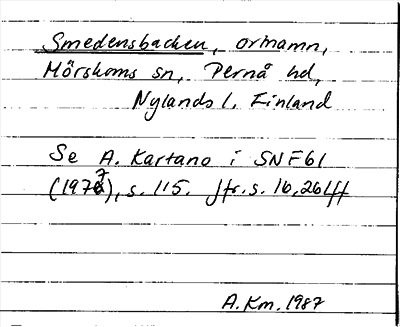 Smedensbacken, ortnamn,
Mörskoms sn, Pernå hd,
Nylands l. Finland
Se A. Kartano i SNF61
(1977), s. 115. Jfr. s. 16, 26 ff
A.Km. 1987